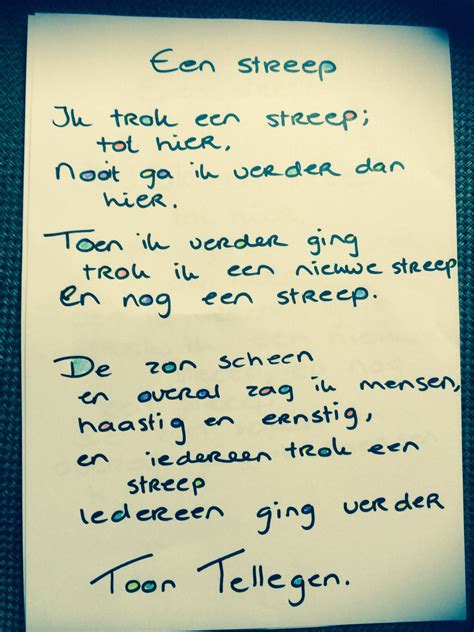 Een streep
Ik trok een streep;
tot hier,
Nooit ga ik verder dan
hier.
Toen ik verder ging
trok ik een nieuwe streep
En nog een streep.
De zon scheen
en overal zag ik mensen,
haastig en ernstig,
en iedereen trok een
streep
Iedereen ging verder
Toon Tellegen.